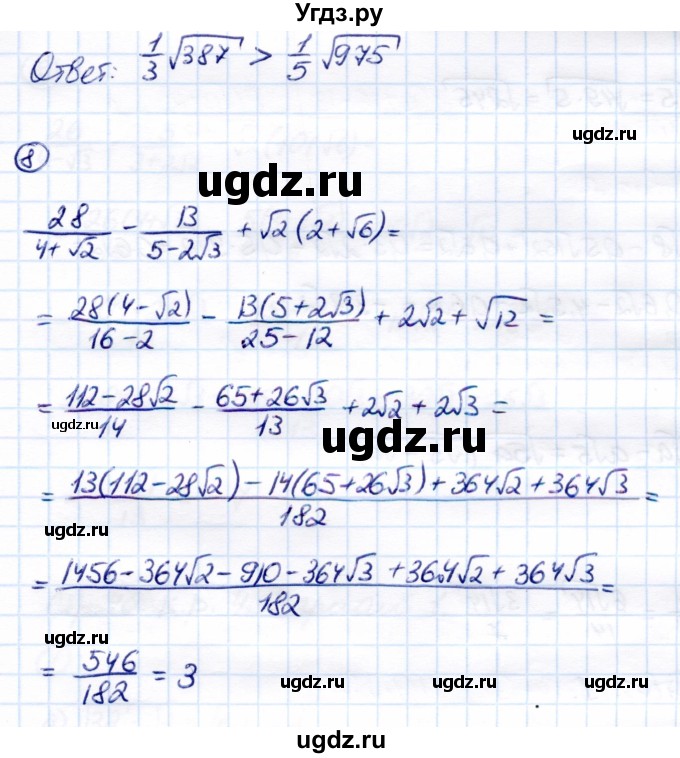 Угдз.ру
Ответ: 1/3 √387 > 1/5 √975
⑧
ugdz.ru
28/(4+√2) - 13/(5-2√3) + √2(2+√6)=
= 28(4-√2)/(16-2) - 13(5+2√3)/(25-12) + 2√2 + √12 =
= (112-28√2)/14 - (65+26√3)/13 + 2√2 + 2√3 =
ugdz.ru
ugdz.ru
= (13(112-28√2) - 14(65+26√3) + 364√2 + 364√3)/182 =
ugdz.ru
= (1456-364√2-910-364√3 +364√2+364√3)/182 =
ugdz.ru
= 546/182 = 3
ugdz.ru
ugdz.ru
ugdz.ru